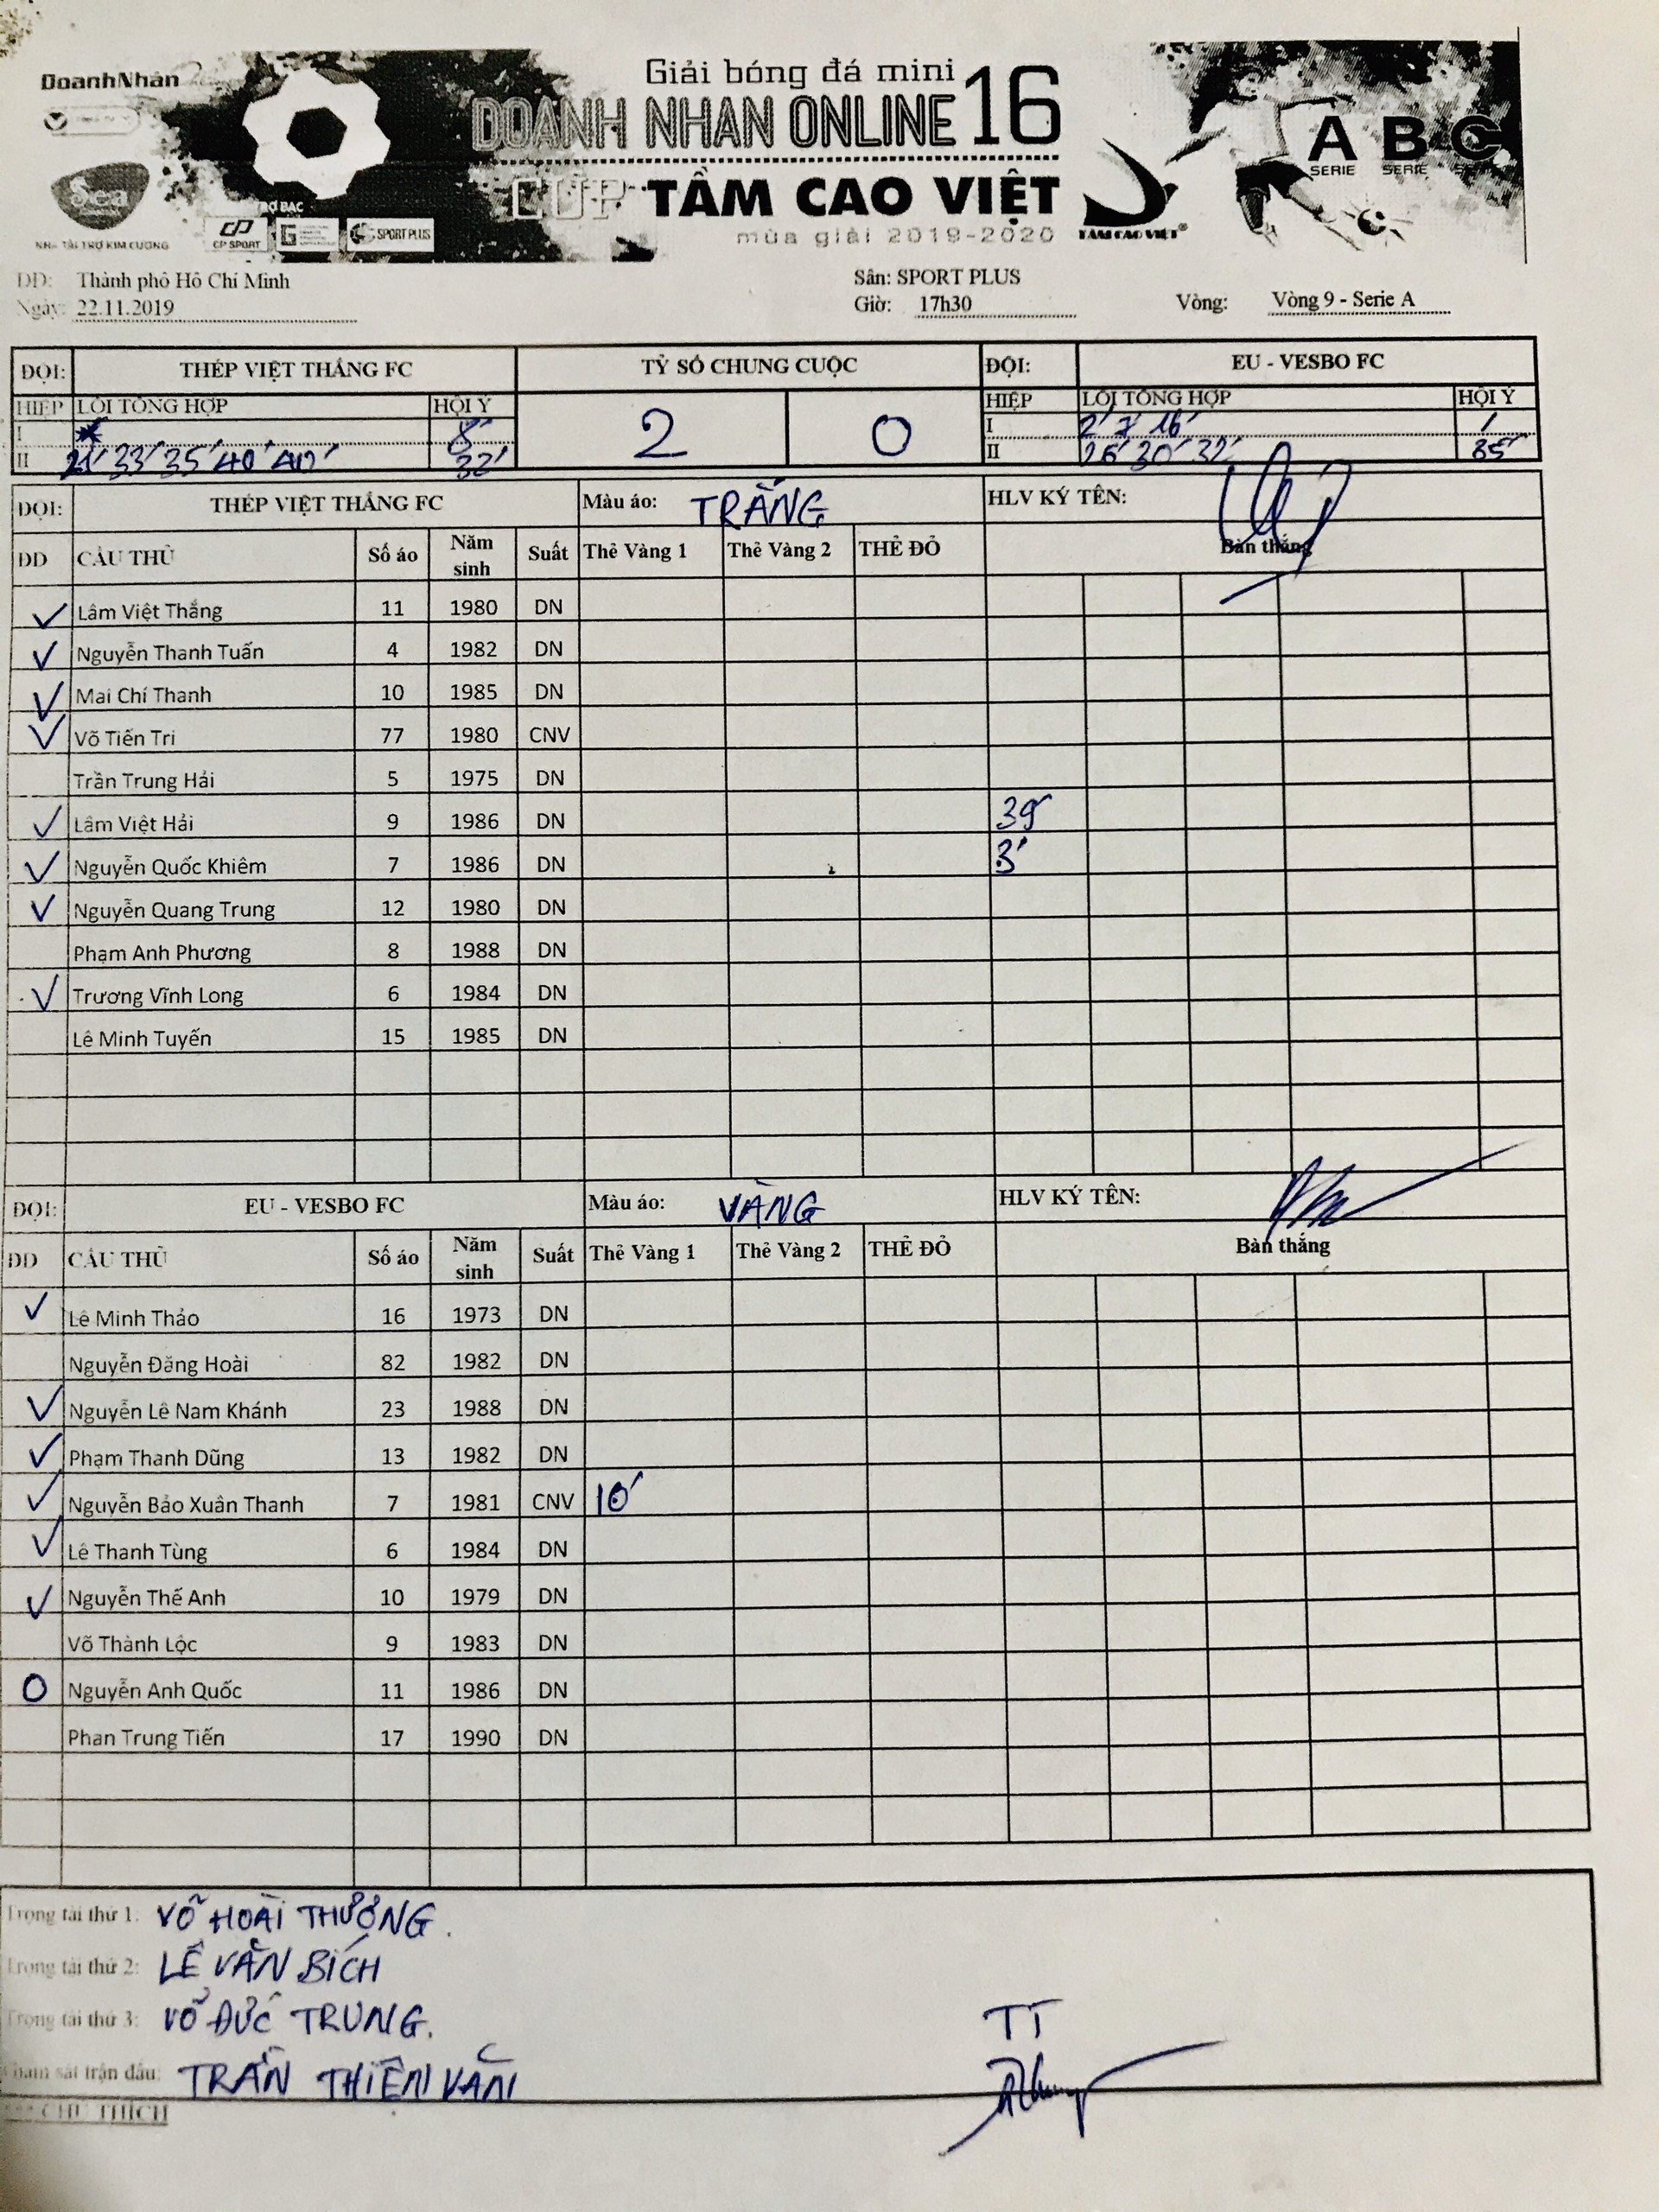 DoanhNhân
Giải bóng đá mini
DOANH NHAN ONLINE 16
CÚP TẦM CAO VIỆT
mùa giải 2019-2020
A B C
SERIE SERIE
Sea
NHÀ TÀI TRỢ KIM CƯƠNG
CP SPORT
SPORT PLUS
TẦM CAO VIỆT®
ĐD: Thành phố Hồ Chí Minh Sân: SPORT PLUS
Ngày: 22.11.2019 Giờ: 17h30 Vòng: Vòng 9 - Serie A
ĐỘI: THÉP VIỆT THẮNG FC TỶ SỐ CHUNG CUỘC ĐỘI: EU - VESBO FC
HIỆP LỖI TỔNG HỢP HỘI Ý 2 0 HIỆP LỖI TỔNG HỢP HỘI Ý
I 8' I 2' 7' 16' /
II 21' 33' 35' 40' 40' 32' II 26' 30' 32' 35'
ĐỘI: THÉP VIỆT THẮNG FC Màu áo: TRẮNG HLV KÝ TÊN:
ĐD CẦU THỦ Số áo Năm sinh Suất Thẻ Vàng 1 Thẻ Vàng 2 THẺ ĐỎ Bàn thắng
✓ Lâm Việt Thắng 11 1980 DN
✓ Nguyễn Thanh Tuấn 4 1982 DN
✓ Mai Chí Thanh 10 1985 DN
✓ Võ Tiến Tri 77 1980 CNV
Trần Trung Hải 5 1975 DN
✓ Lâm Việt Hải 9 1986 DN 39'
✓ Nguyễn Quốc Khiêm 7 1986 DN 3'
✓ Nguyễn Quang Trung 12 1980 DN
Phạm Anh Phương 8 1988 DN
✓ Trương Vĩnh Long 6 1984 DN
Lê Minh Tuyến 15 1985 DN
ĐỘI: EU - VESBO FC Màu áo: VÀNG HLV KÝ TÊN:
ĐD CẦU THỦ Số áo Năm sinh Suất Thẻ Vàng 1 Thẻ Vàng 2 THẺ ĐỎ Bàn thắng
✓ Lê Minh Thảo 16 1973 DN
Nguyễn Đăng Hoài 82 1982 DN
✓ Nguyễn Lê Nam Khánh 23 1988 DN
✓ Phạm Thanh Dũng 13 1982 DN
✓ Nguyễn Bảo Xuân Thanh 7 1981 CNV 10'
✓ Lê Thanh Tùng 6 1984 DN
✓ Nguyễn Thế Anh 10 1979 DN
Võ Thành Lộc 9 1983 DN
O Nguyễn Anh Quốc 11 1986 DN
Phan Trung Tiến 17 1990 DN
Trọng tài thứ 1: VÕ HOÀI THƯỢNG.
Trọng tài thứ 2: LÊ VĂN BÍCH
Trọng tài thứ 3: VÕ ĐỨC TRUNG.
TT
Giám sát trận đấu: TRẦN THIÊM VĂN
CHÚ THÍCH